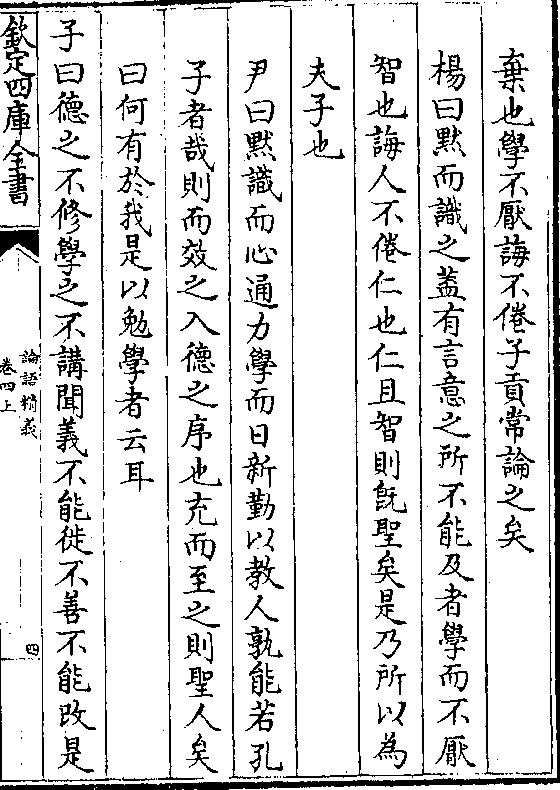 棄也學不厭誨不倦子貢常論之矣
楊曰黙而識之蓋有言意之所不能及者學而不厭
智也誨人不倦仁也仁且智則旣聖矣是乃所以為
夫子也
尹曰黙識而心通力學而日新勤以教人孰能若孔
子者哉則而效之入德之序也充而至之則聖人矣
曰何有於我是以勉學者云耳
子曰德之不修學之不講聞義不能徙不善不能改是
欽定四庫全書
論語精義
卷四上
四